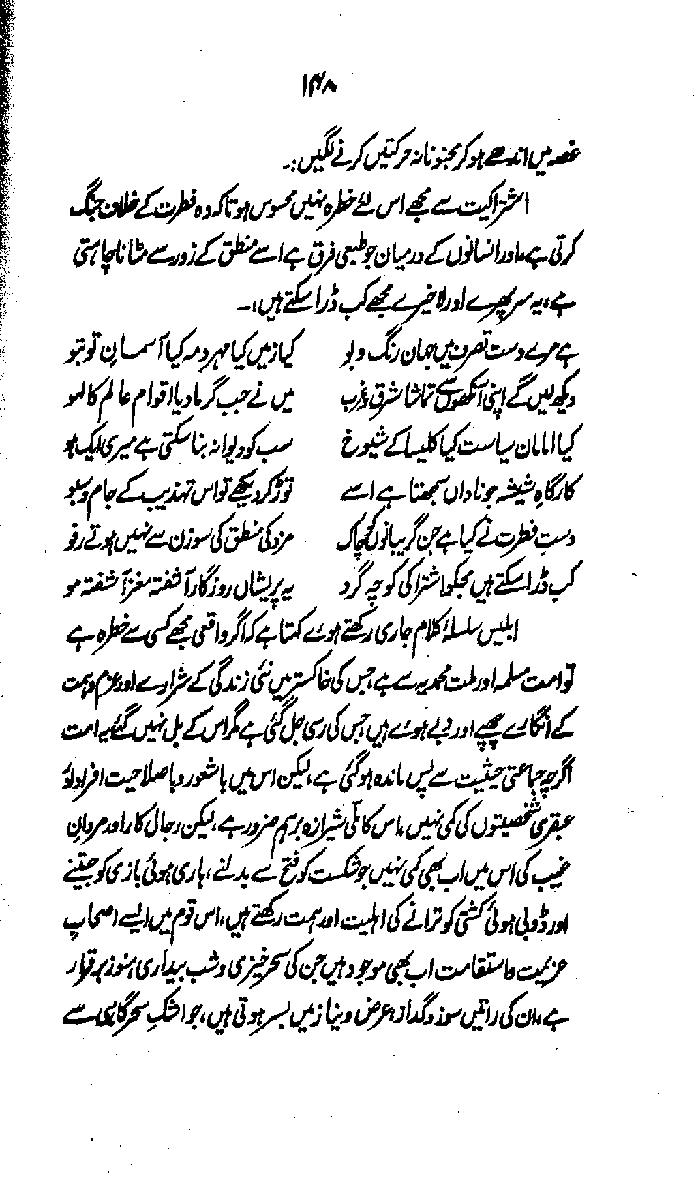 ۱۴۸
غصہ میں اندھے ہو کر مجنونانہ حرکتیں کرنے لگیں:۔
اشتراکیت سے مجھے اس لئے خطرہ نہیں محسوس ہوتا کہ وہ فطرت کے خلاف جنگ
کرتی ہے، اور انسانوں کے درمیان جو طبعی فرق ہے اسے منطق کے زور سے مٹانا چاہتی
ہے، یہ سر پھرے اور لاخیرے مجھے کب ڈرا سکتے ہیں:۔
ہے مرے دست تصرف میں جہان رنگ و بو کیا زمیں کیا مہر و مہ کیا آسمان تو بتو
دیکھ لیں گے اپنی آنکھوں سے تماشا شرق و غرب میں نے جب گرما دیا اقوام عالم کا لہو
کیا امامان سیاست کیا کلیسا کے شیوخ سب کو دیوانہ بنا سکتی ہے میری ایک ہو
کارگاہ شیشہ جو ناداں سمجھتا ہے اسے توڑ کر دیکھے تو اس تہذیب کے جام و سبو
دست فطرت نے کیا ہے جن گریبانوں کو چاک مزدکی منطق کی سوزن سے نہیں ہوتے رفو
کب ڈرا سکتے ہیں مجھکو اشتراکی کوچہ گرد یہ پریشاں روزگار آشفتہ مغز آشفتہ مو
ابلیس سلسلۂ کلام جاری رکھتے ہوئے کہتا ہے کہ اگر واقعی مجھے کسی سے خطرہ ہے
تو امت مسلمہ اور ملت محمدیہ سے ہے جس کی خاکستر میں نئی زندگی کے شرارے اور عزم و ہمت
کے انگارے چھپے اور دبے ہوئے ہیں جس کی رسی جل گئی ہے مگر اس کے بل نہیں گئے، یہ امت
اگرچہ جماعتی حیثیت سے پس ماندہ ہو گئی ہے، لیکن اس میں باشعور و باصلاحیت افراد اور
عبقری شخصیتوں کی کمی نہیں، اس کا ملی شیرازہ برہم ضرور ہے، لیکن رجال کار اور مردان
غیب کی اس میں اب بھی کمی نہیں جو شکست کو فتح سے بدلنے، ہاری ہوئی بازی کو جیتنے
اور ڈوبی ہوئی کشتی کو ترانے کی اہلیت اور ہمت رکھتے ہیں، اس قوم میں ایسے اصحاب
عزیمت و استقامت اب بھی موجود ہیں جن کی سحر خیزی و شب بیداری ہنوز برقرار
ہے، ان کی راتیں سوز و گداز، عرض و نیاز میں بسر ہوتی ہیں، جو اشک سحر گاہی سے